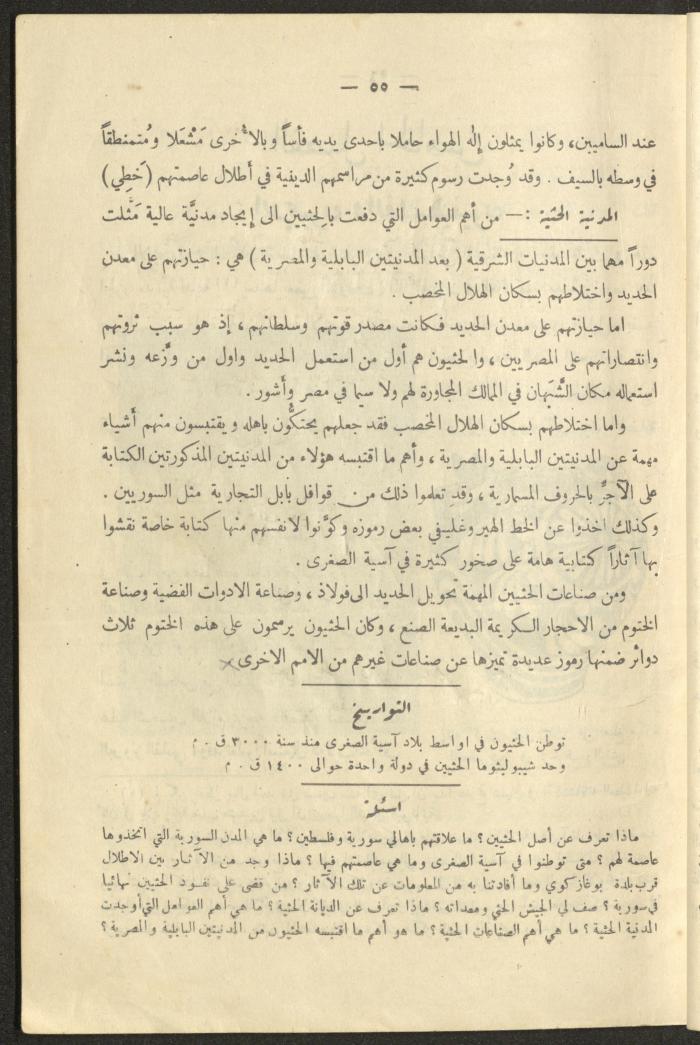 — ٥٥ —
عند الساميين، وكانوا يمثلون إله الهواء حاملا باحدى يديه فأساً وبالأخرى مَشْعَلا ومُتمنطقاً
في وسطه بالسيف . وقد وُجدت رسوم كثيرة من مراسمهم الدينية في أطلال عاصمتهم (خَطِي)
المدنية الحثية :— من أهم العوامل التي دفعت بالحثيين الى إيجاد مدنيَّة عالية مَثَّلت
دوراً مهما بين المدنيات الشرقية ( بعد المدنيتين البابلية والمصرية ) هي : حيازتهم على معدن
الحديد واختلاطهم بسكان الهلال المخصب .
اما حيازتهم على معدن الحديد فكانت مصدر قوتهم وسلطاتهم ، إذ هو سبب ثروتهم
وانتصاراتهم على المصريين ، والحثيون هم أول من استعمل الحديد واول من وزَّعه ونشر
استعماله مكان الشَّبَهان في الممالك المجاورة لهم ولا سيما في مصر وأشور .
واما اختلاطهم بسكان الهلال المخصب فقد جعلهم يحتكُّون باهله ويقتبسون منهم أشياء
مهمة عن المدنيتين البابلية والمصرية ، وأهم ما اقتبسه هؤلاء من المدنيتين المذكورتين الكتابة
على الآجرِّ بالحروف المسمارية ، وقد تعلموا ذلك من قوافل بابل التجارية مثل السوريين .
وكذلك اخذوا عن الخط الهيروغليفي بعض رموزه وكوَّنوا لانفسهم منها كتابة خاصة نقشوا
بها آثاراً كتابية هامة على صخور كثيرة في آسية الصغرى .
ومن صناعات الحثيين المهمة تحويل الحديد الى فولاذ ، وصناعة الادوات الفضية وصناعة
الختوم من الاحجار الكريمة البديعة الصنع ، وكان الحثيون يرسمون على هذه الختوم ثلاث
دوائر ضمنها رموز عديدة تميزها عن صناعات غيرهم من الامم الاخرى
التواريخ
توطن الحثيون في اواسط بلاد آسية الصغرى منذ سنة ٣٠٠٠ ق . م
وحد شيبوليئوما الحثيين في دولة واحدة حوالى ١٤٠٠ ق . م
اسئلة
ماذا تعرف عن أصل الحثيين ؟ ما علاقتهم باهالي سورية وفلسطين ؟ ما هي المدن السورية التي اتخذوها
عاصمة لهم ؟ متى توطنوا في آسية الصغرى وما هي عاصمتهم فيها ؟ ماذا وجد من الآثار بين الاطلال
قرب بلدة بوغازكوي وما أفادتنا به من المعلومات عن تلك الآثار ؟ من قضى على نفوذ الحثيين نهائيا
في سورية ؟ صف لي الجيش الحثي ومعداته ؟ ماذا تعرف عن الديانة الحثية ؟ ما هي أهم العوامل التي أوجدت
المدنية الحثية ؟ ما هي أهم الصناعات الحثية ؟ ما هو أهم ما اقتبسه الحثيون من المدنيتين البابلية والمصرية ؟